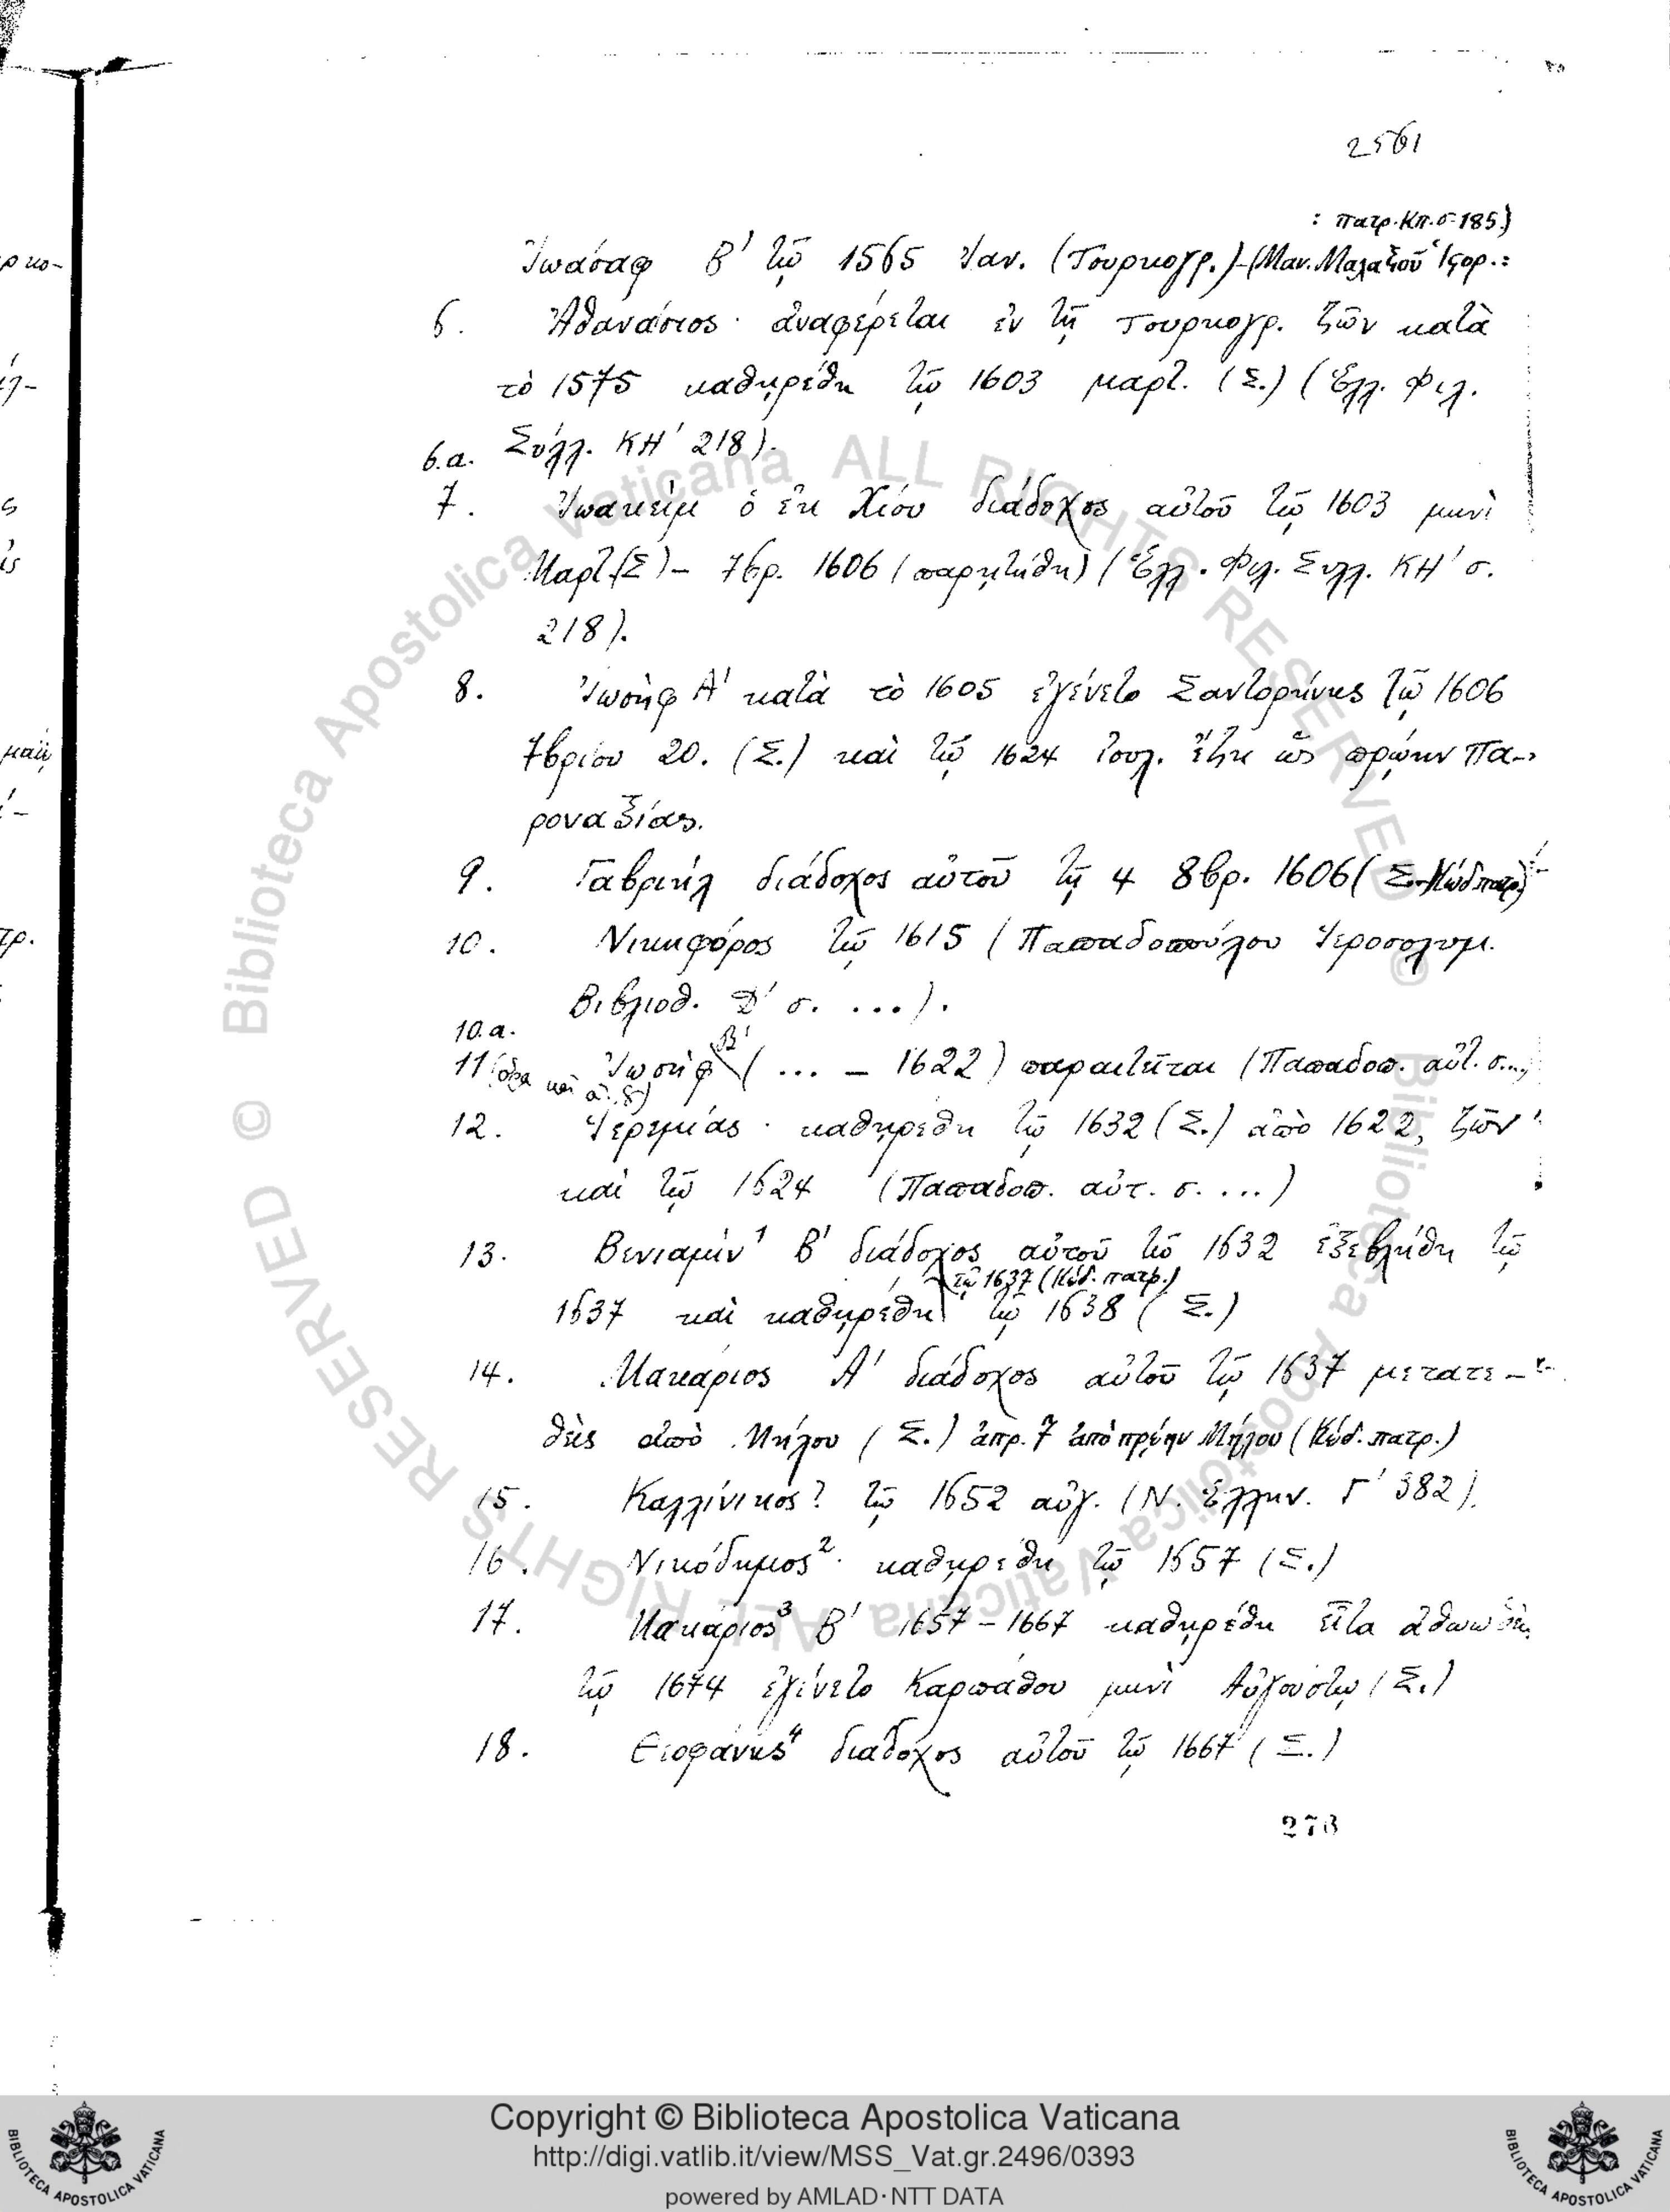 2561
: πατρ. Κπ. σ. 185)
Ἰωάσαφ Β' τῷ 1565 Ἰαν. (Τουρκογρ.)-(Μαν. Μαλαξοῦ Ἱστορ.:
6. Ἀθανάσιος· ἀναφέρεται ἐν τῇ Τουρκογρ. ζῶν κατὰ
τὸ 1575 καθῃρέθη τῷ 1603 μαρτ. (Σ.) (Ἑλλ. Φιλ.
6.α. Σύλλ. ΚΗ' 218).
7. Ἰωακεὶμ ὁ ἐκ Χίου διάδοχος αὐτοῦ τῷ 1603 μηνὶ
Μαρτ. (Σ) - 7βρ. 1606 (παρῃτήθη) (Ἑλλ. Φιλ. Συλλ. ΚΗ' σ.
218).
8. Ἰωσὴφ Α' κατὰ τὸ 1605 ἐγένετο Σαντορήνης τῷ 1606
7βρίου 20. (Σ.) καὶ τῷ 1624 Ἰουλ. ἔζη ὡς πρώην Πα-
ροναξίας.
9. Γαβριήλ διάδοχος αὐτοῦ τῇ 4 8βρ. 1606 (Σ.-Κώδ. πατρ.)
10. Νικηφόρος τῷ 1615 (Παπαδοπούλου Ἱεροσολυμ.
Βιβλιοθ. Δ' σ. ...).
10.α.
11 (ὅρα καὶ ἀ. 8) Ἰωσὴφ Β' (... - 1622) παραιτεῖται (Παπαδοπ. αὐτ. σ...)
12. Ἱερεμίας· καθῃρέθη τῷ 1632 (Σ.) ἀπὸ 1622, ζῶν
καὶ τῷ 1624 (Παπαδοπ. αὐτ. σ. ...)
13. Βενιαμὶν¹ Β' διάδοχος αὐτοῦ τῷ 1632 ἐξεβλήθη τῷ
τῷ 1637 (Κώδ. πατρ.)
1637 καὶ καθῃρέθη τῷ 1638 (Σ.)
14. Μακάριος Α' διάδοχος αὐτοῦ τῷ 1637 μετατε-
θεὶς ἀπὸ Μήλου (Σ.) ἀπρ. 7 ἀπὸ πρώην Μήλου (Κώδ. πατρ.)
15. Καλλίνικος? τῷ 1652 αὐγ. (Ν. Ἑλλην. Γ' 382).
16. Νικόδημος². καθῃρέθη τῷ 1657 (Σ.)
17. Μακάριος³ Β' 1657 - 1667 καθῃρέθη εἶτα ἀθωωθεὶς
τῷ 1674 ἐγένετο Καρπάθου μηνὶ Αὐγούστῳ (Σ.)
18. Θεοφάνης⁴ διάδοχος αὐτοῦ τῷ 1667 (Σ.)
276
© Biblioteca Apostolica Vaticana ALL RIGHTS RESERVED © Biblioteca Apostolica Vaticana ALL RIGHTS RESERVED
Copyright © Biblioteca Apostolica Vaticana
http://digi.vatlib.it/view/MSS_Vat.gr.2496/0393
powered by AMLAD·NTT DATA
BIBLIOTECA APOSTOLICA VATICANA
BIBLIOTECA APOSTOLICA VATICANA